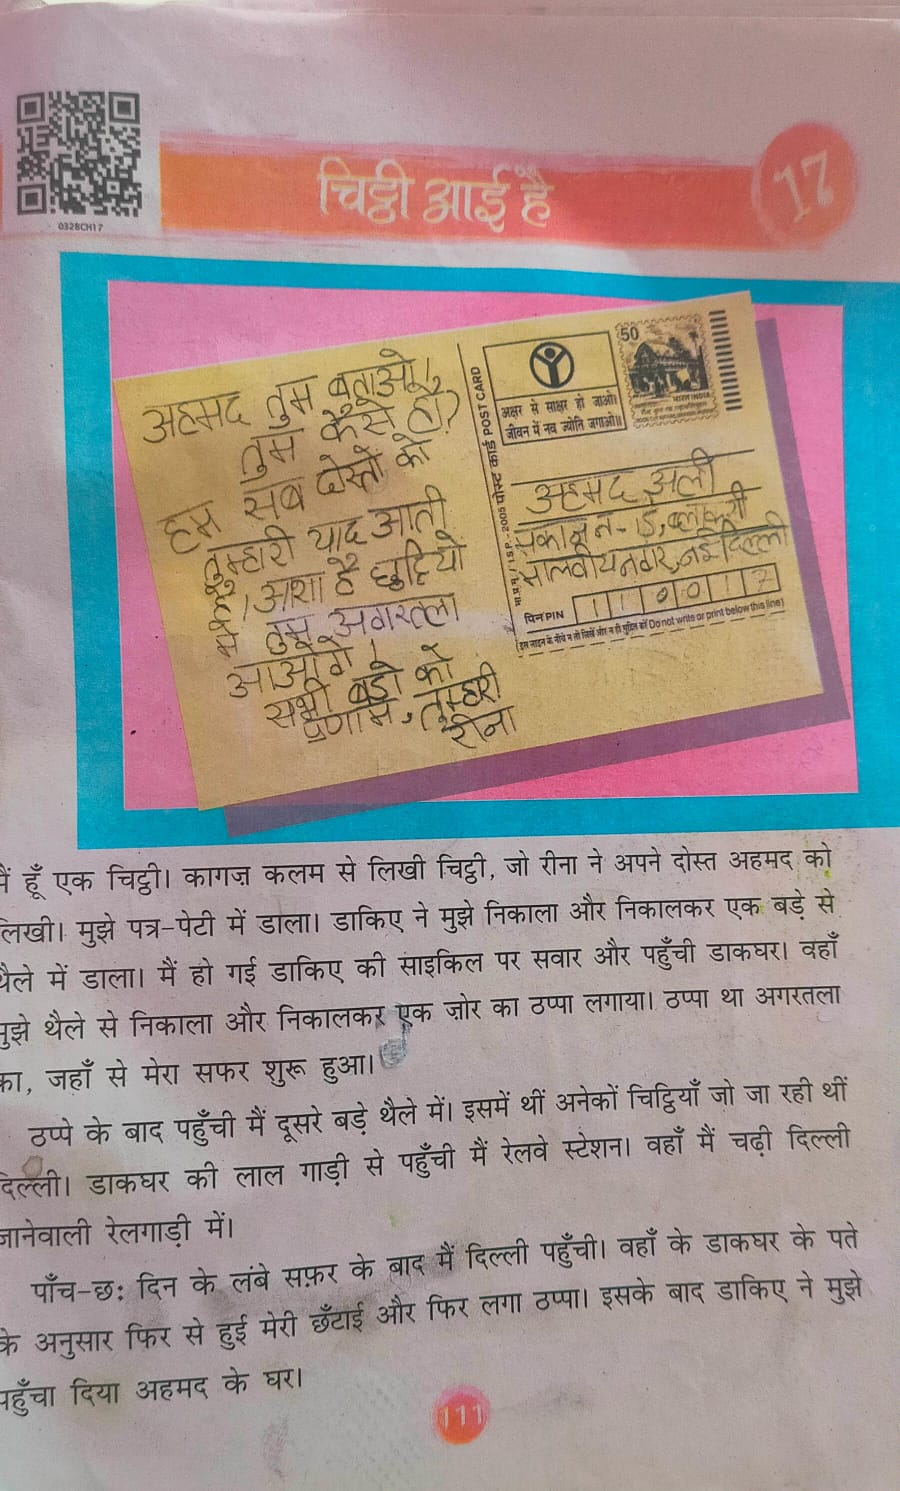 0328CH17
चिट्ठी आई है
17
अहमद तुम बताओ!
तुम कैसे हो?
हम सब दोस्तों को
तुम्हारी याद आती
है। आशा है छुट्टियों
में तुम अगरतला
आओगे।
सभी बड़ों को
प्रणाम, तुम्हारी
रीना
पोस्ट कार्ड POST CARD
अक्षर से साक्षर हो जाओ।
जीवन में नव ज्योति जगाओ॥
50
भारत INDIA
अहमद अली
मकान न-15, ब्लाक-सी
मालवीय नगर, नई दिल्ली
पिन PIN 110017
(इस लाइन के नीचे न तो लिखें और न ही मुद्रित करें Do not write or print below this line)
मैं हूँ एक चिट्ठी। कागज़ कलम से लिखी चिट्ठी, जो रीना ने अपने दोस्त अहमद को
लिखी। मुझे पत्र-पेटी में डाला। डाकिए ने मुझे निकाला और निकालकर एक बड़े से
थैले में डाला। मैं हो गई डाकिए की साइकिल पर सवार और पहुँची डाकघर। वहाँ
मुझे थैले से निकाला और निकालकर एक ज़ोर का ठप्पा लगाया। ठप्पा था अगरतला
का, जहाँ से मेरा सफर शुरू हुआ।
ठप्पे के बाद पहुँची मैं दूसरे बड़े थैले में। इसमें थीं अनेकों चिट्ठियाँ जो जा रही थीं
दिल्ली। डाकघर की लाल गाड़ी से पहुँची मैं रेलवे स्टेशन। वहाँ मैं चढ़ी दिल्ली
जानेवाली रेलगाड़ी में।
पाँच-छः दिन के लंबे सफ़र के बाद मैं दिल्ली पहुँची। वहाँ के डाकघर के पते
के अनुसार फिर से हुई मेरी छँटाई और फिर लगा ठप्पा। इसके बाद डाकिए ने मुझे
पहुँचा दिया अहमद के घर।
111